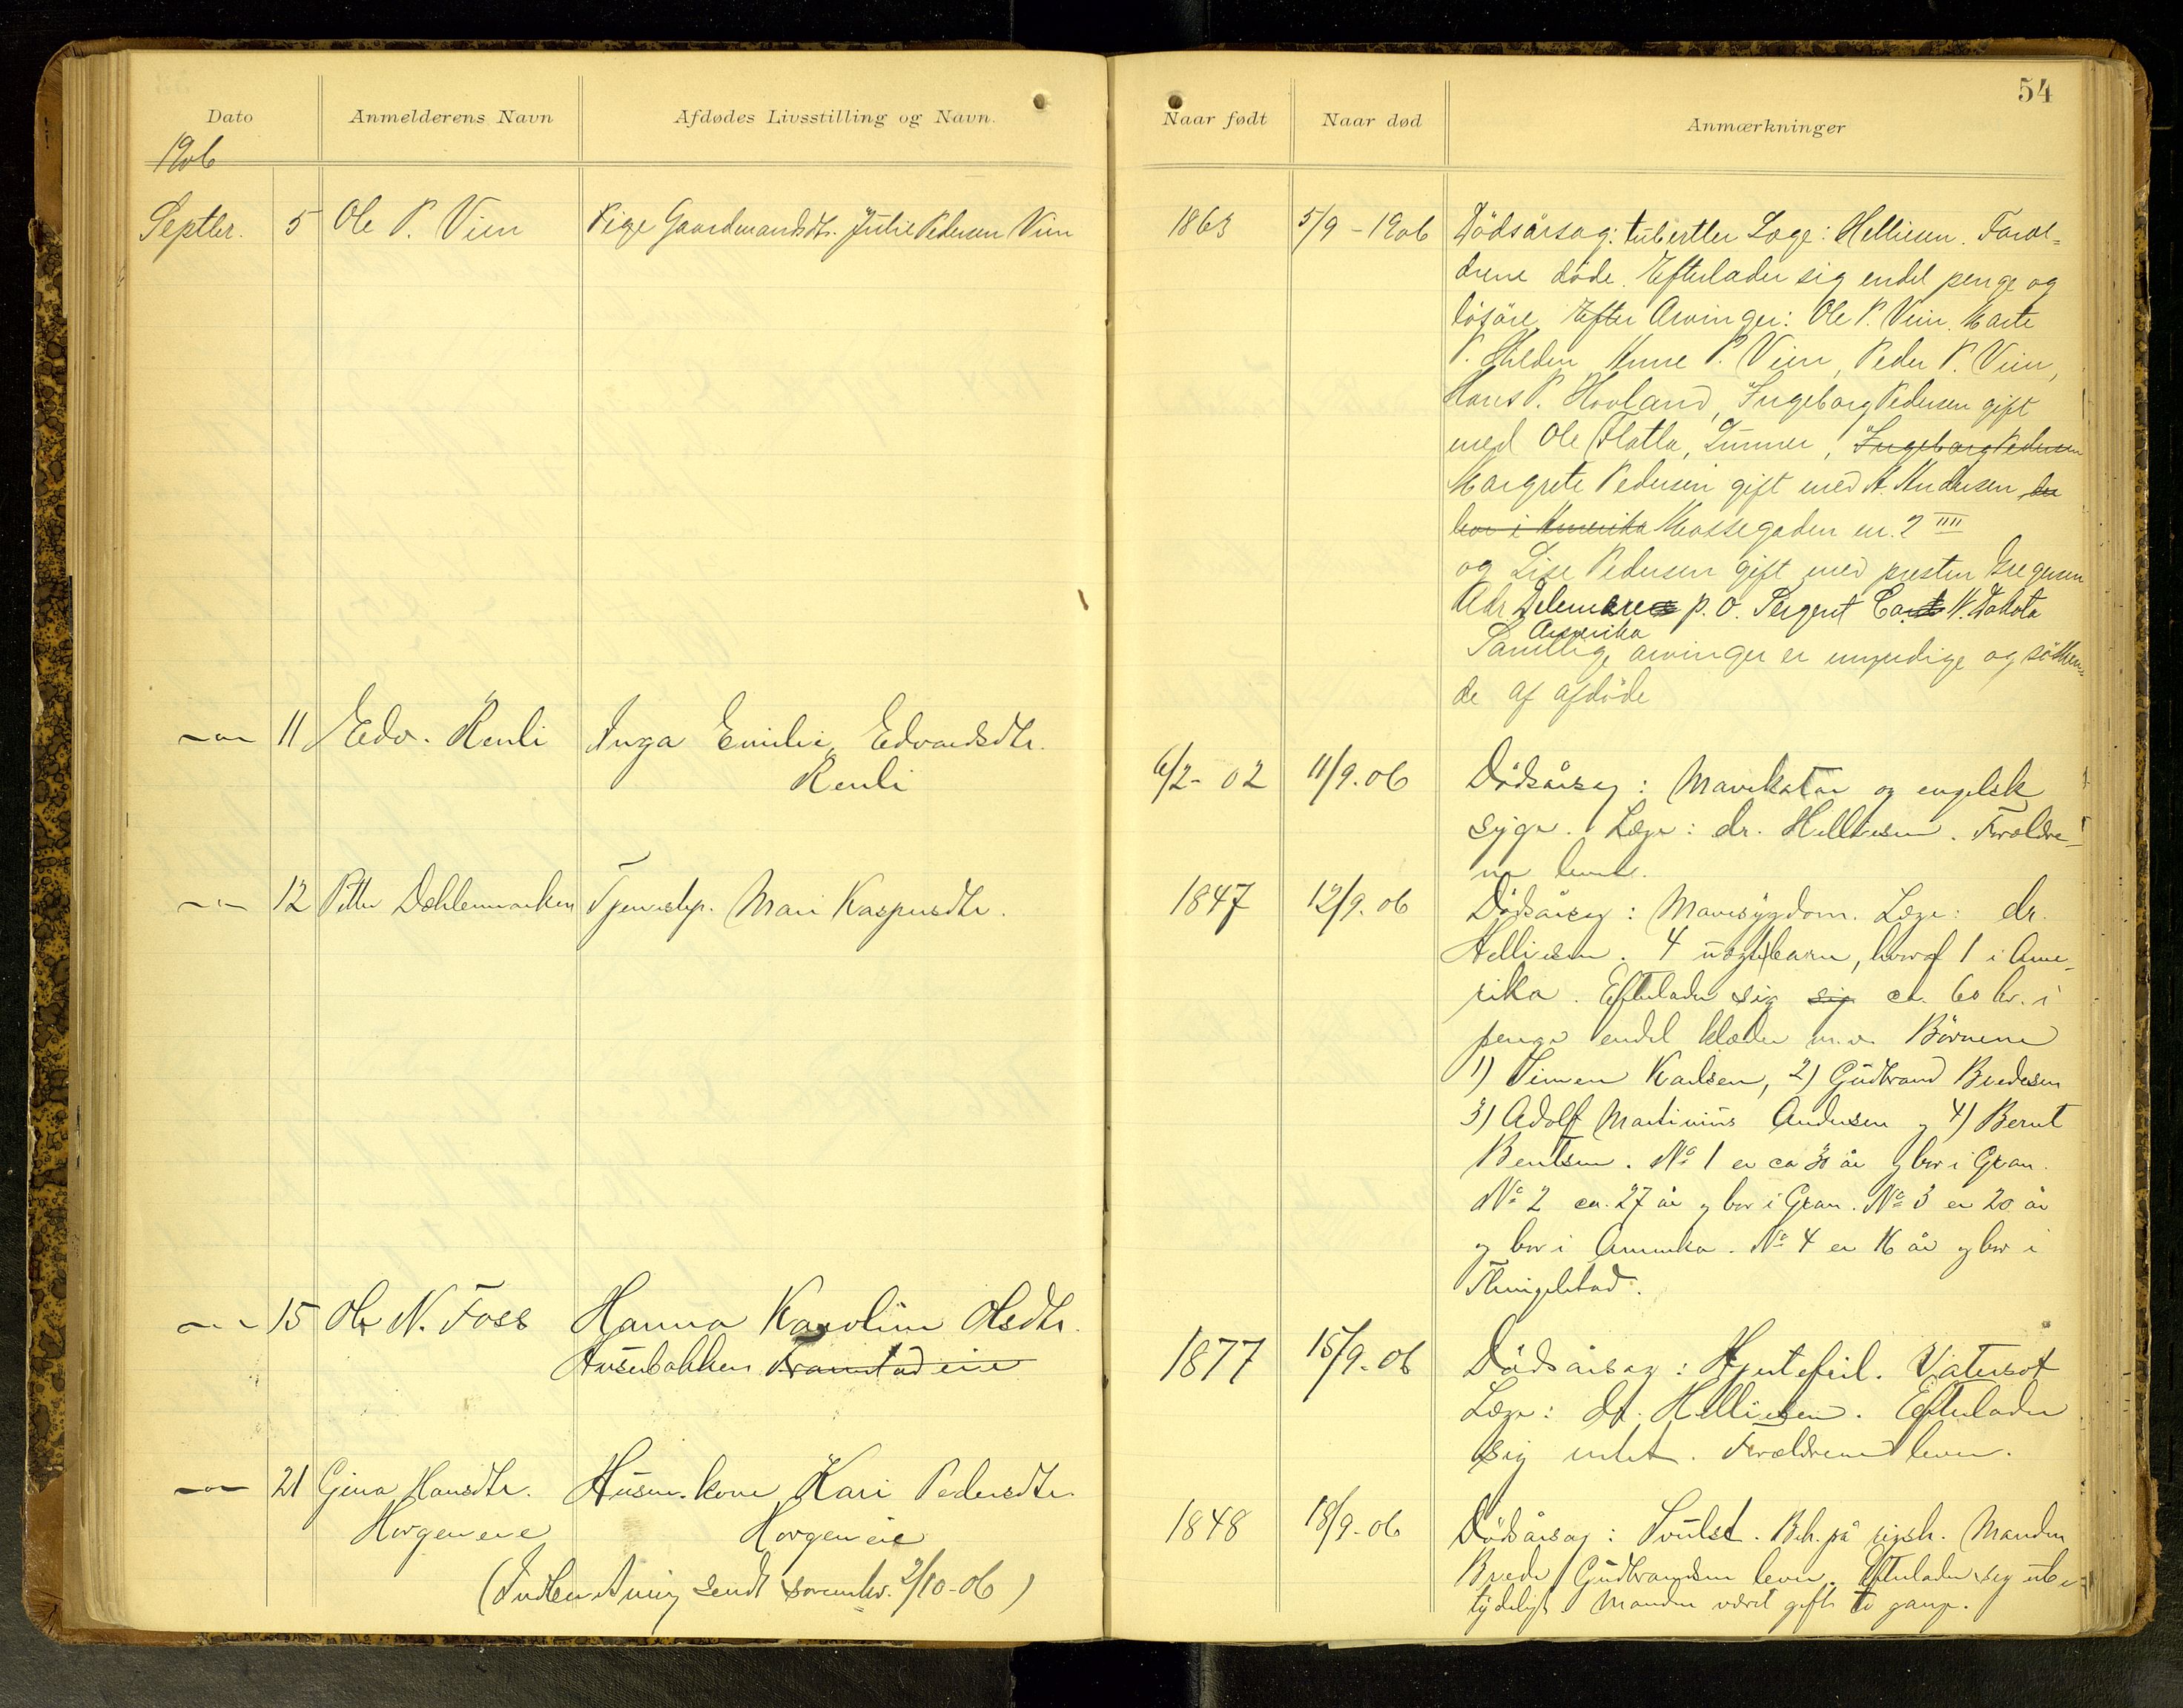 54
Dato
Anmelderens Navn
Afdødes Livsstilling og Navn.
Naar født
Naar død
Anmærkninger
1906
Septbr. 5 Ole P. Vien Pige Gaardmandsdtr. Julie Pedersen Vien 1863 5/9 - 1906 Dödsårsag: tuberkler Læge: Helliesen. Foræl-
drene döde. Efterlader sig endel penge og
lösöre Efter Arvinger: Ole P. Vien. Marte
P. Hilden Anne P. Vien, Peder P. Vien,
Hans P. Hovland, Ingeborg Pedersen gift
med Ole Flatla, Lunner, Ingeborg Pedersen
Margrete Pedersen gift med A. Andersen der
bor i Amerika Mossegaden nr. 2 IIII
og Lise Pedersen gift med presten Gregersen
Adr Delemere p. o. Sergent Co. N. Dakota
Amerika
Samtlige arvinger er myndige og sösken-
de af afdöde
-"- 11 Edv. Renli Inga Emilie Edvardsdtr. 
Renli 6/2 - 02 11/9. 06 Dödsårsag: Mavekatar og engelsk
syge. Læge: dr. Helliesen. Forældre-
ne lever.
-"- 12 Petter Dæhlenmarken Tjenestep. Mari Kaspersdtr. 1847 12/9. 06 Dödsårsag: Mavesygdom. Læge: dr.
Helliesen. 4 uægte barn, hvoraf 1 i Ame-
rika. Efterlader sig sig ca. 60 kr. i
penge endel klæder m.v. Börnene
1) Simen Karlsen, 2) Gudbrand Bredesen
3) Adolf Martinius Andersen og 4) Bernt
Bentsen. No 1 er ca 30 år og bor i Gran.
No 2 ca. 27 år og bor i Gran. No 3 er 20 år
og bor i Amerika. No 4 er 16 år og bor i
Thingelstad.
-"- 15 Ole N. Foss Hanna Karoline Olsdtr.
Husebakken Framstadeie 1877 15/9. 06 Dödsårsag: Hjertefeil. Vatersot
Læge: dr. Helliesen. Efterlader
sig intet. Forældrene lever.
-"- 21 Gina Hansdtr. Husm. kone Kari Pedersdtr.
Horgeneie Horgeneie 1848 18/9 - 06 Dödsårsag: Svulst. Beh. på rigsh. Manden
Brede Gudbrandsen lever. Efterlader sig ube-
tydeligt Manden været gift to gange.
(Indberetning sendt sorenskr. 2/10 - 06)